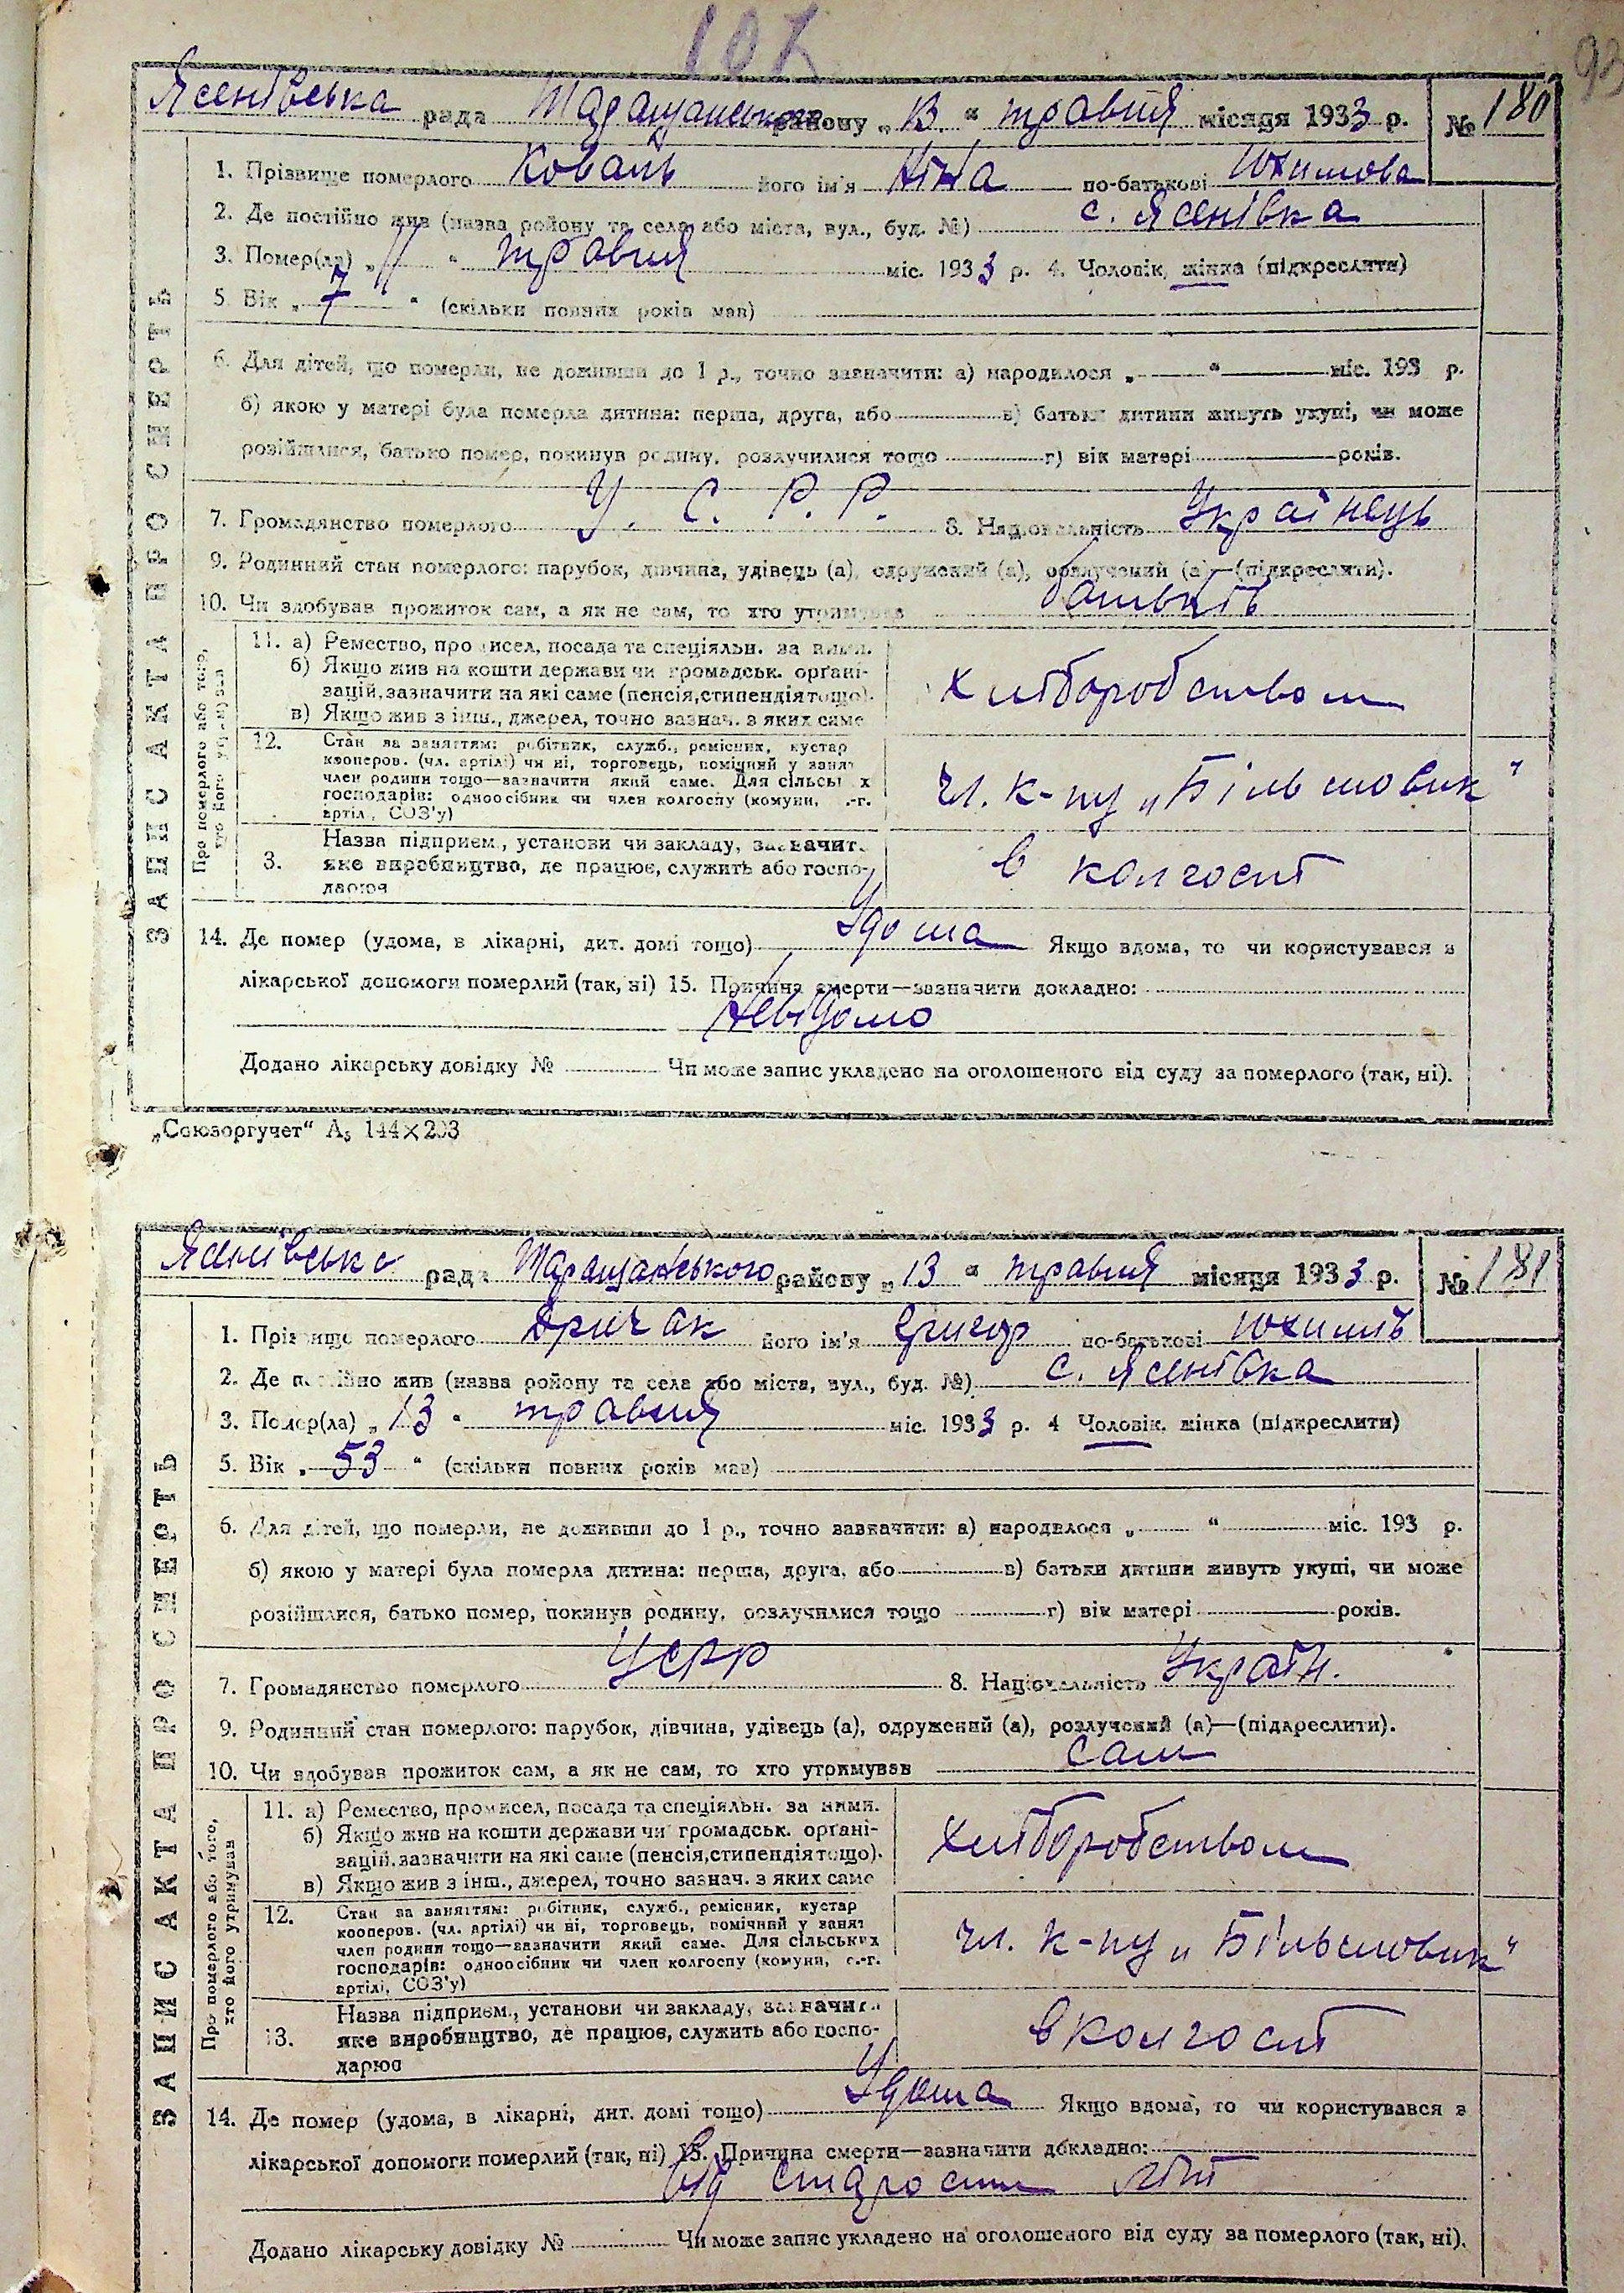 107
93
Ясенівська рада Таращанського району „13" травня місяця 1933 р. № 180
ЗАПИС АКТА ПРО СМЕРТЬ
1. Прізвище померлого Коваль його ім'я Ніна по-батькові Юхимова
2. Де постійно жив (назва району та села або міста, вул., буд. №) с. Ясенівка
3. Помер(ла) „11" травня міс. 1933 р. 4. Чоловік, жінка (підкреслити)
5. Вік „7" (скільки повних років мав)
6. Для дітей, що померли, не доживши до 1 р., точно зазначити: а) народилося „ " міс. 193 р.
б) якою у матері була померла дитина: перша, друга, або в) батьки дитини живуть укупі, чи може
розійшлися, батько помер, покинув родину, розлучилися тощо г) вік матері років.
7. Громадянство померлого У. С. Р. Р. 8. Національність Українець
9. Родинний стан померлого: парубок, дівчина, удівець (а), одружений (а), розлучений (а)—(підкреслити).
10. Чи здобував прожиток сам, а як не сам, то хто утримував батьків
Про померлого або того, хто його утримував
11. а) Ремество, промисел, посада та спеціяльн. за ними.
б) Якщо жив на кошти держави чи громадськ. органі-
зацій, зазначити на які саме (пенсія, стипендія тощо).
в) Якщо жив з інш., джерел, точно зазнач. з яких саме
хліборобством
12. Стан за заняттям: робітник, служб., ремісник, кустар
кооперов. (чл. артілі) чи ні, торговець, помічний у занят
член родини тощо—зазначити який саме. Для сільських
господарів: одноосібник чи член колгоспу (комуни, с.-г.
артілі, СОЗ'у)
чл. к-пу „Більшовик"
3. Назва підприєм., установи чи закладу, зазначити
яке виробництво, де працює, служить або госпо-
дарює
в колгоспі
14. Де помер (удома, в лікарні, дит. домі тощо) Удома Якщо вдома, то чи користувався з
лікарської допомоги померлий (так, ні) 15. Причина смерти—зазначити докладно:
Невідомо
Додано лікарську довідку № Чи може запис укладено на оголошеного від суду за померлого (так, ні).
„Союзоргучет" А5 144×203
Ясенівська рада Таращанського району „13" травня місяця 1933 р. № 181
ЗАПИС АКТА ПРО СМЕРТЬ
1. Прізвище померлого Дричак його ім'я Григор по-батькові Юхимів
2. Де постійно жив (назва району та села або міста, вул., буд. №) с. Ясенівка
3. Помер(ла) „13" травня міс. 1933 р. 4 Чоловік, жінка (підкреслити)
5. Вік „53" (скільки повних років мав)
6. Для дітей, що померли, не доживши до 1 р., точно зазначити: а) народилося „ " міс. 193 р.
б) якою у матері була померла дитина: перша, друга, або в) батьки дитини живуть укупі, чи може
розійшлися, батько помер, покинув родину, розлучилися тощо г) вік матері років.
7. Громадянство померлого УСРР 8. Національність Україн.
9. Родинний стан померлого: парубок, дівчина, удівець (а), одружений (а), розлучений (а)—(підкреслити).
10. Чи здобував прожиток сам, а як не сам, то хто утримував сам
Про померлого або того, хто його утримував
11. а) Ремество, промисел, посада та спеціяльн. за ними.
б) Якщо жив на кошти держави чи громадськ. органі-
зацій, зазначити на які саме (пенсія, стипендія тощо).
в) Якщо жив з інш., джерел, точно зазнач. з яких саме
хліборобством
12. Стан за заняттям: робітник, служб., ремісник, кустар
кооперов. (чл. артілі) чи ні, торговець, помічний у занят
член родини тощо—зазначити який саме. Для сільських
господарів: одноосібник чи член колгоспу (комуни, с.-г.
артілі, СОЗ'у)
чл. к-пу „Більшовик"
13. Назва підприєм., установи чи закладу, зазначити
яке виробництво, де працює, служить або госпо-
дарює
в колгоспі
14. Де помер (удома, в лікарні, дит. домі тощо) Удома Якщо вдома, то чи користувався з
лікарської допомоги померлий (так, ні) 15. Причина смерти—зазначити докладно:
від старости літ
Додано лікарську довідку № Чи може запис укладено на оголошеного від суду за померлого (так, ні).